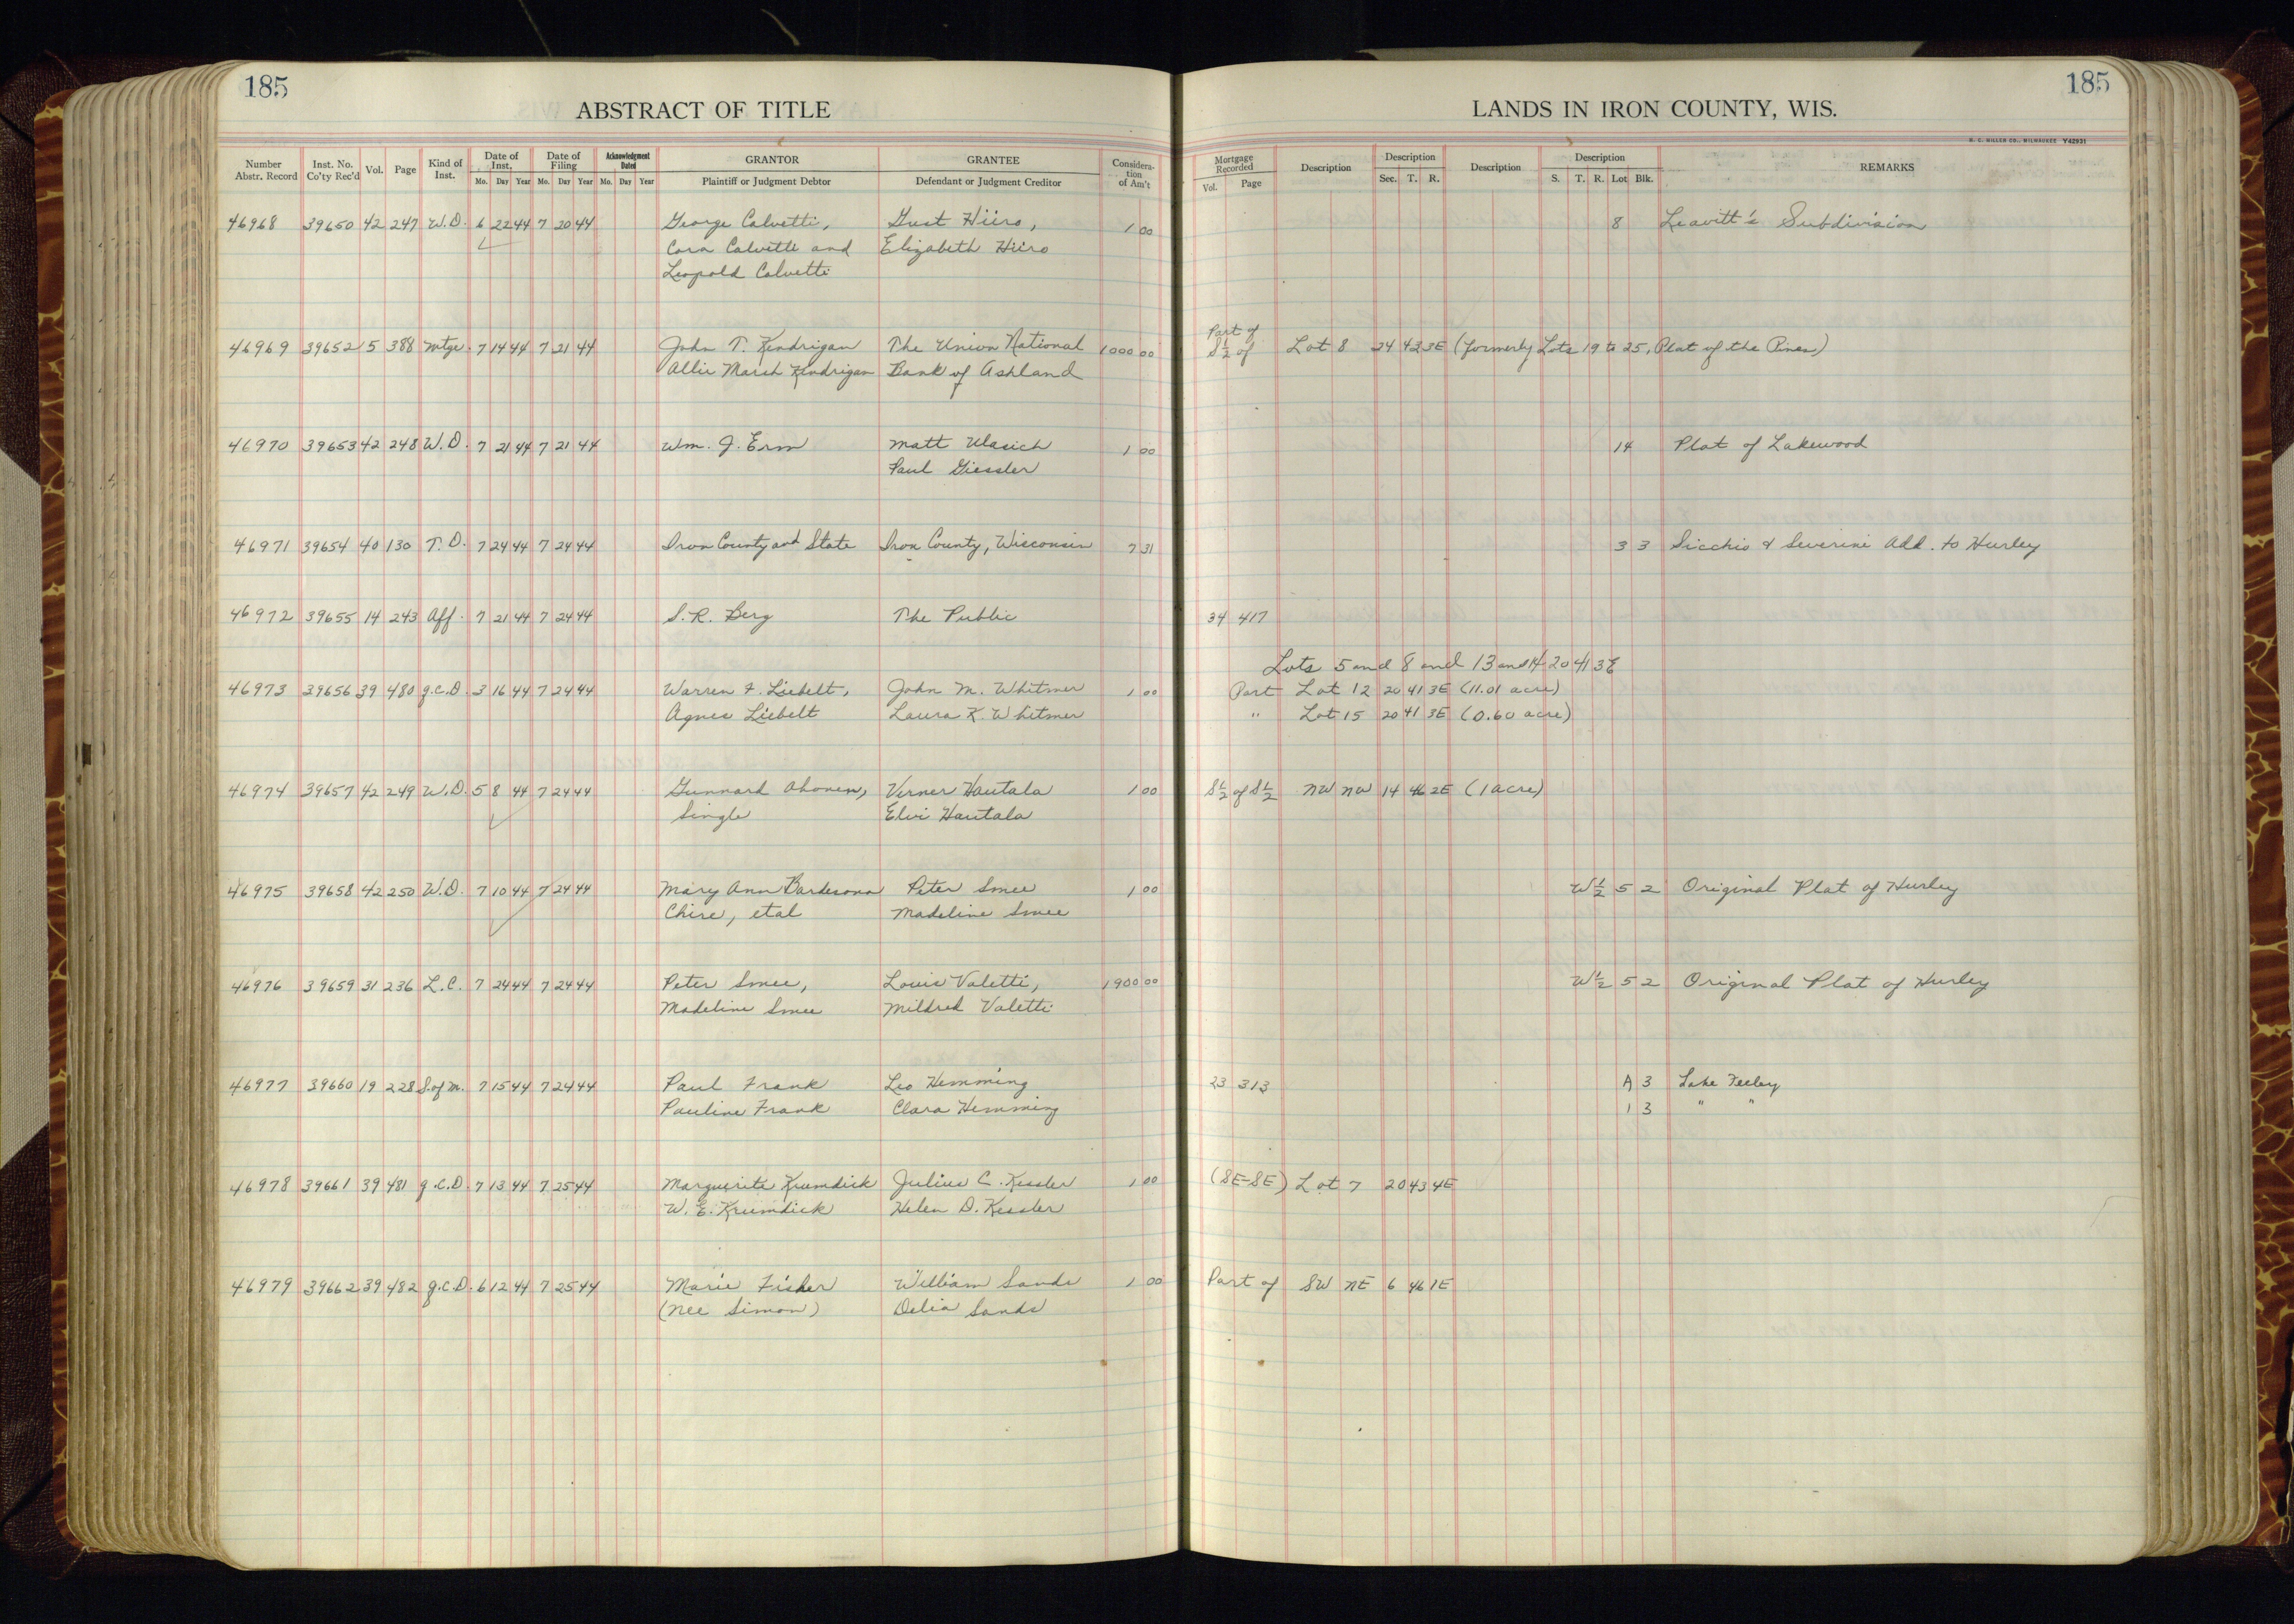 185
185
ABSTRACT OF TITLE
LANDS IN IRON COUNTY, WIS.
H. C. MILLER CO., MILWAUKEE Y42931
Number Abstr. Record Inst. No. Co'ty Rec'd Vol. Page Kind of Inst. Date of Inst. Mo. Day Year Date of Filing Mo. Day Year Acknowledgment Dated Mo. Day Year GRANTOR Plaintiff or Judgment Debtor GRANTEE Defendant or Judgment Creditor Considera-tion of Am't Mortgage Recorded Vol. Page Description Description Sec. T. R. Description Description S. T. R. Lot Blk. REMARKS
46968 39650 42 247 W.D. 6 22 44 7 20 44 George Calvetti, Gust Hiiro, 1 00 8 Leavitt's Subdivision
Cora Calvetti and Elizabeth Hiiro
Leopold Calvetti
Part of
46969 39652 15 388 Mtge. 7 14 44 7 21 44 John T. Kendrigan The Union National 1000 00 S½ of Lot 8 24 42 3E (formerly Lots 19 to 25, Plat of the Pines)
Allie Marsh Kendrigan Bank of Ashland
46970 39653 42 248 W.D. 7 21 44 7 21 44 Wm. J. Erm Matt Ulasich 1 00 14 Plat of Lakewood
Paul Giessler
46971 39654 40 130 T.D. 7 24 44 7 24 44 Iron County and State Iron County, Wisconsin 7 31 3 3 Sicchio & Severini Add. to Hurley
46972 39655 14 243 Aff. 7 21 44 7 24 44 S. R. Berg The Public 34 417
Lots 5 and 8 and 13 and 14 20 41 3E
46973 39656 39 480 q.c.D. 3 16 44 7 24 44 Warren F. Liebelt, John M. Whitmer 1 00 Part Lot 12 20 41 3E (11.01 acre)
Agnes Liebelt Laura K. Whitmer " Lot 15 20 41 3E (0.60 acre)
46974 39657 42 249 W.D. 5 8 44 7 24 44 Gunnard Ahonen, Verner Hautala 1 00 S½ of S½ NW NW 14 46 2E (1 acre)
Single Elvi Hautala
46975 39658 42 250 W.D. 7 10 44 7 24 44 Mary Ann Bardesona Peter Smee 1 00 W½ 5 2 Original Plat of Hurley
Chire, etal Madeline Smee
46976 39659 31 236 L.C. 7 24 44 7 24 44 Peter Smee, Louis Valetti, 1900 00 W½ 5 2 Original Plat of Hurley
Madeline Smee Mildred Valetti
46977 39660 19 228 S.of M. 7 15 44 7 24 44 Paul Frank Leo Hemming 23 313 A 3 Lake Feeley
Pauline Frank Clara Hemming 1 3 " "
46978 39661 39 481 q.c.D. 7 13 44 7 25 44 Marguerite Krumdick Julius C. Kessler 1 00 (SE-SE) Lot 7 20 43 4E
W. E. Krumdick Helen D. Kessler
46979 39662 39 482 q.c.D. 6 12 44 7 25 44 Marie Fisher William Sands 1 00 Part of SW NE 6 46 1E
(nee Simon) Delia Sands